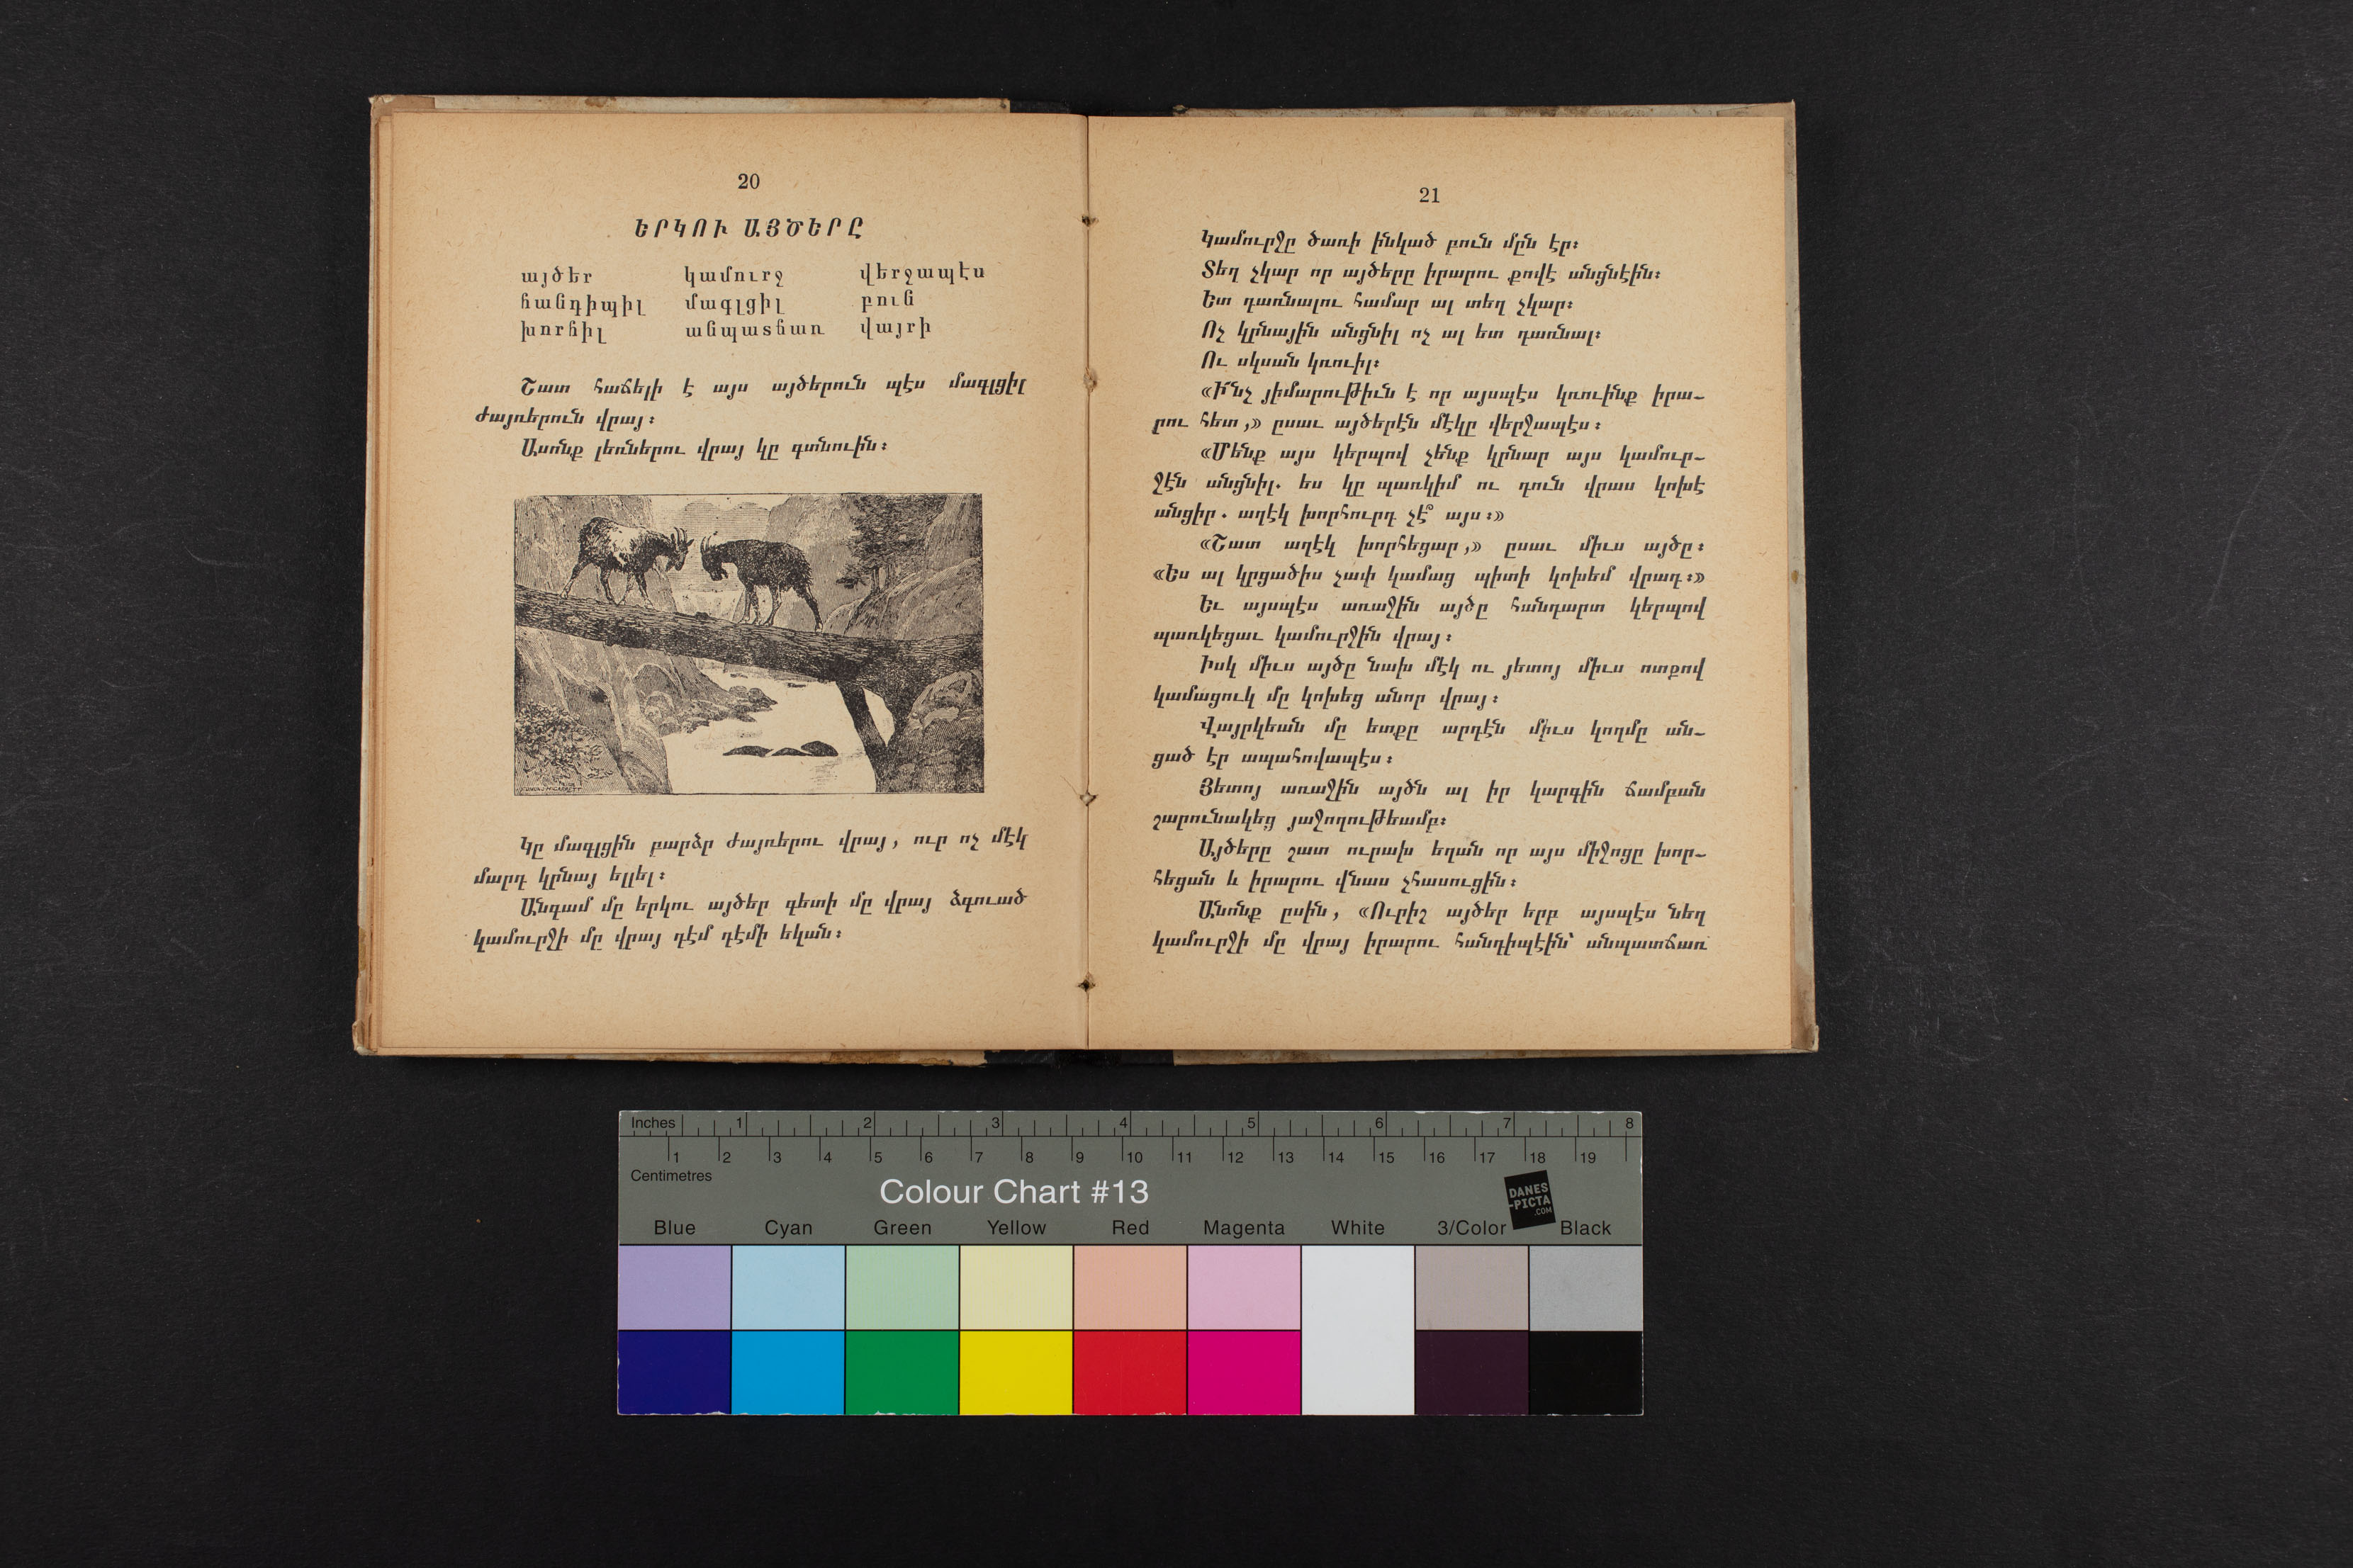 20
ԵՐԿՈՒ ԱՅԾԵՐԸ
այծեր կամուրջ վերջապէս
հանդիպիլ մագլցիլ բուն
խորհիլ անպատճառ վայրի
Շատ հաճելի է այս այծերուն պէս մագլցիլ
ժայռերուն վրայ։
Ասոնք լեռներու վրայ կը գտնուին։
Կը մագլցին բարձր ժայռերու վրայ, ուր ոչ մէկ
մարդ կրնայ ելլել։
Անգամ մը երկու այծեր գետի մը վրայ ձգուած
կամուրջի մը վրայ դէմ դէմի եկան։
21
Կամուրջը ծառի ինկած բուն մըն էր։
Տեղ չկար որ այծերը իրարու քովէ անցնէին։
Ետ դառնալու համար ալ տեղ չկար։
Ոչ կրնային անցնիլ ոչ ալ ետ դառնալ։
Ու սկսան կռուիլ։
«Ի՜նչ յիմարութիւն է որ այսպէս կռուինք իրա-
րու հետ,» ըսաւ այծերէն մէկը վերջապէս։
«Մենք այս կերպով չենք կրնար այս կամուր-
ջէն անցնիլ. ես կը պառկիմ ու դուն վրաս կոխէ
անցիր. աղէկ խորհուրդ չէ՞ այս։»
«Շատ աղէկ խորհեցար,» ըսաւ միւս այծը։
«Ես ալ կրցածիս չափ կամաց պիտի կոխեմ վրադ։»
Եւ այսպէս առաջին այծը հանդարտ կերպով
պառկեցաւ կամուրջին վրայ։
Իսկ միւս այծը նախ մէկ ու յետոյ միւս ոտքով
կամացուկ մը կոխեց անոր վրայ։
Վայրկեան մը ետքը արդէն միւս կողմը ան-
ցած էր ապահովապէս։
Յետոյ առաջին այծն ալ իր կարգին ճամբան
շարունակեց յաջողութեամբ։
Այծերը շատ ուրախ եղան որ այս միջոցը խոր-
հեցան և իրարու վնաս չհասուցին։
Անոնք ըսին, «Ուրիշ այծեր երբ այսպէս նեղ
կամուրջի մը վրայ իրարու հանդիպէին՝ անպատճառ
Inches 1 2 3 4 5 6 7 8
1 2 3 4 5 6 7 8 9 10 11 12 13 14 15 16 17 18 19
Centimetres
Colour Chart #13
DANES
-PICTA
.COM
Blue Cyan Green Yellow Red Magenta White 3/Color Black